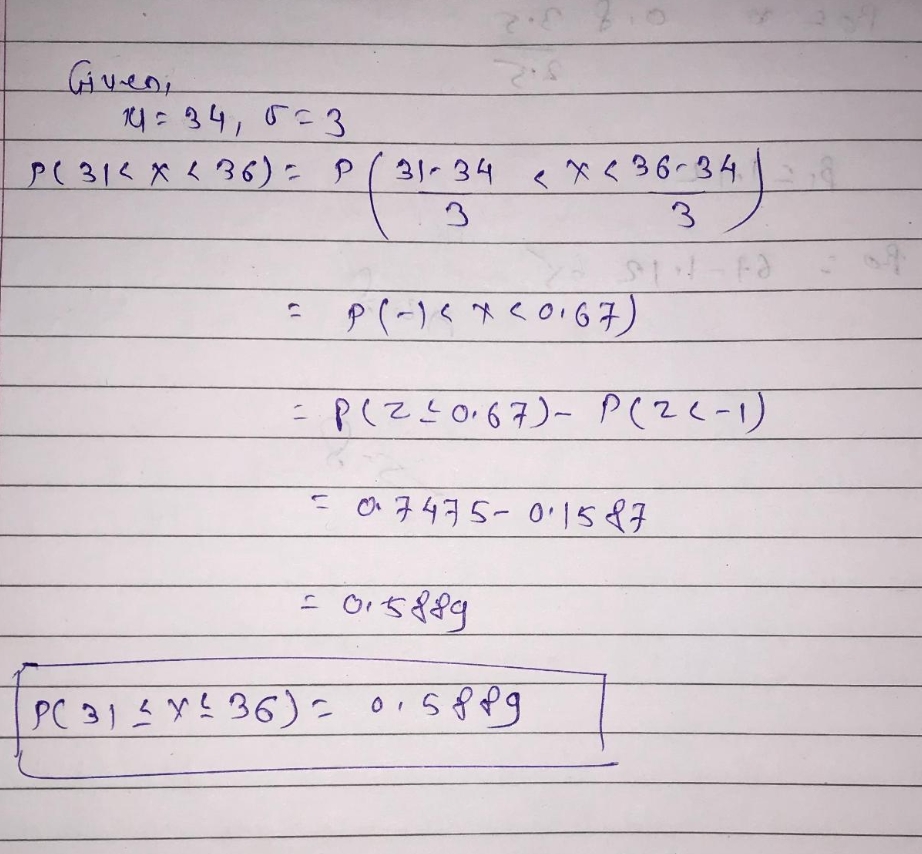 Given,
μ = 34, σ = 3
P( 31 < x < 36) = P ( 31-34 / 3 < x < 36-34 / 3 )
= P(-1 < x < 0.67)
= P(Z ≤ 0.67) - P(Z < -1)
= 0.7475 - 0.1587
= 0.5889
P( 31 ≤ x ≤ 36) = 0.5889